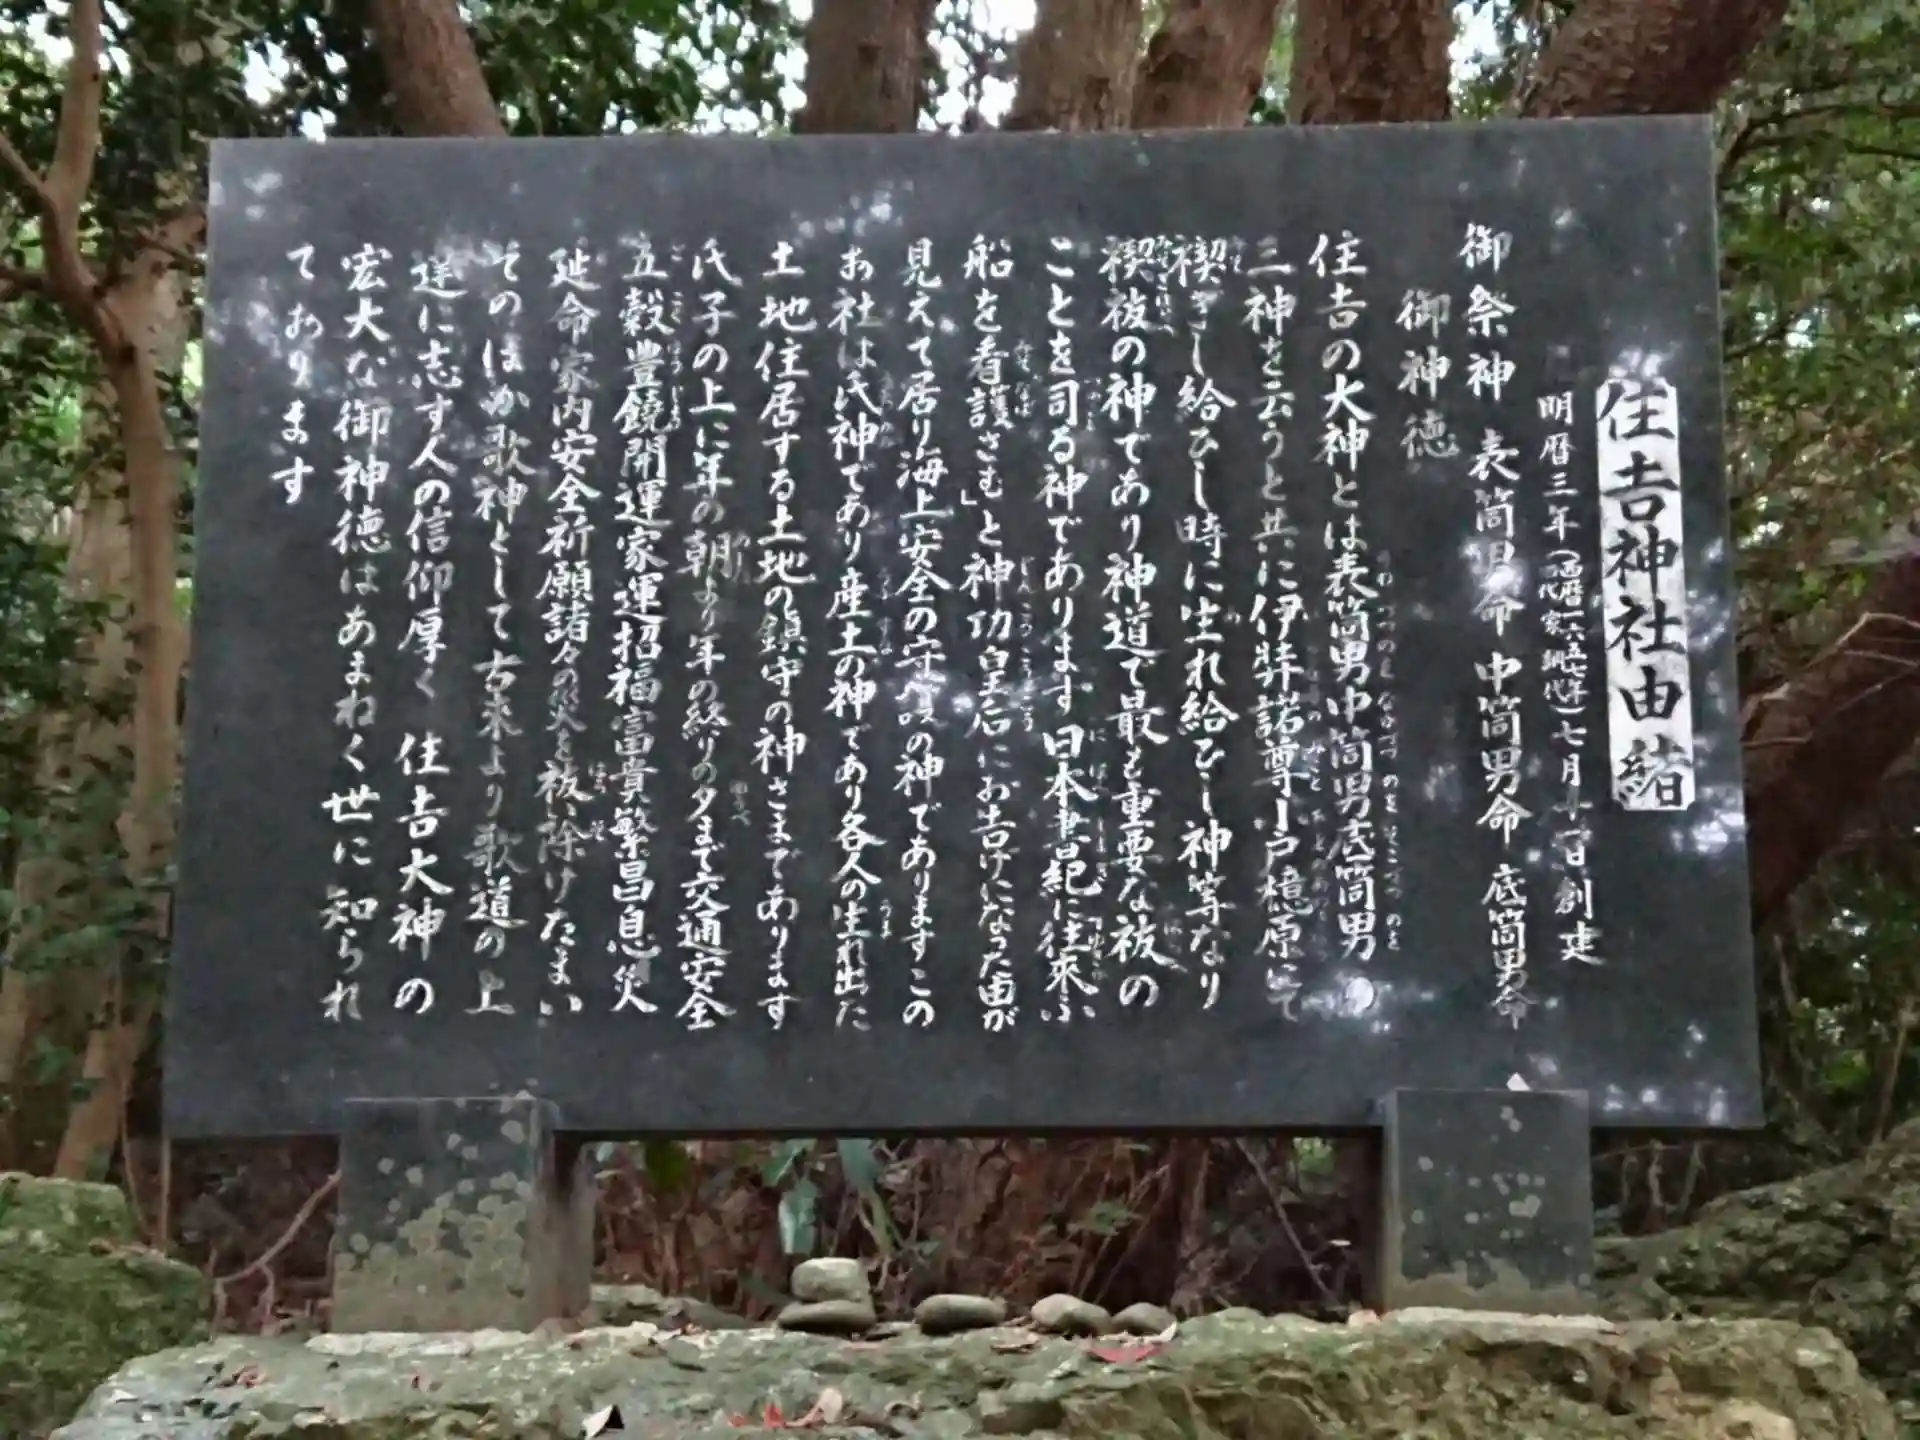 住吉神社由緒
明暦三年(西暦一六五七年)七月十一日創建
御祭神 表筒男命 中筒男命 底筒男命
御神徳
住吉の大神とは表筒男中筒男底筒男の
三神を云うと共に伊弉諾尊が戸檍原にて
禊ぎし給ひし時に生れ給ひし神等なり
禊祓の神であり神道で最も重要な祓の
ことを司る神であります日本書紀に往来ふ
船を看護さむ」と神功皇后にお告げになった由が
見えて居り海上安全の守護の神でありますこの
お社は氏神であり産土の神であり各人の生れ出た
土地住居する土地の鎮守の神さまであります
氏子の上に年の朝より年の終りの夕まで交通安全
五穀豊饒開運家運招福富貴繁昌息災
延命家内安全祈願諸々の災を祓い除けたまい
そのほか歌神として古来より歌道の上
達に志す人の信仰厚く 住吉大神の
宏大な御神徳はあまねく世に知られ
ております